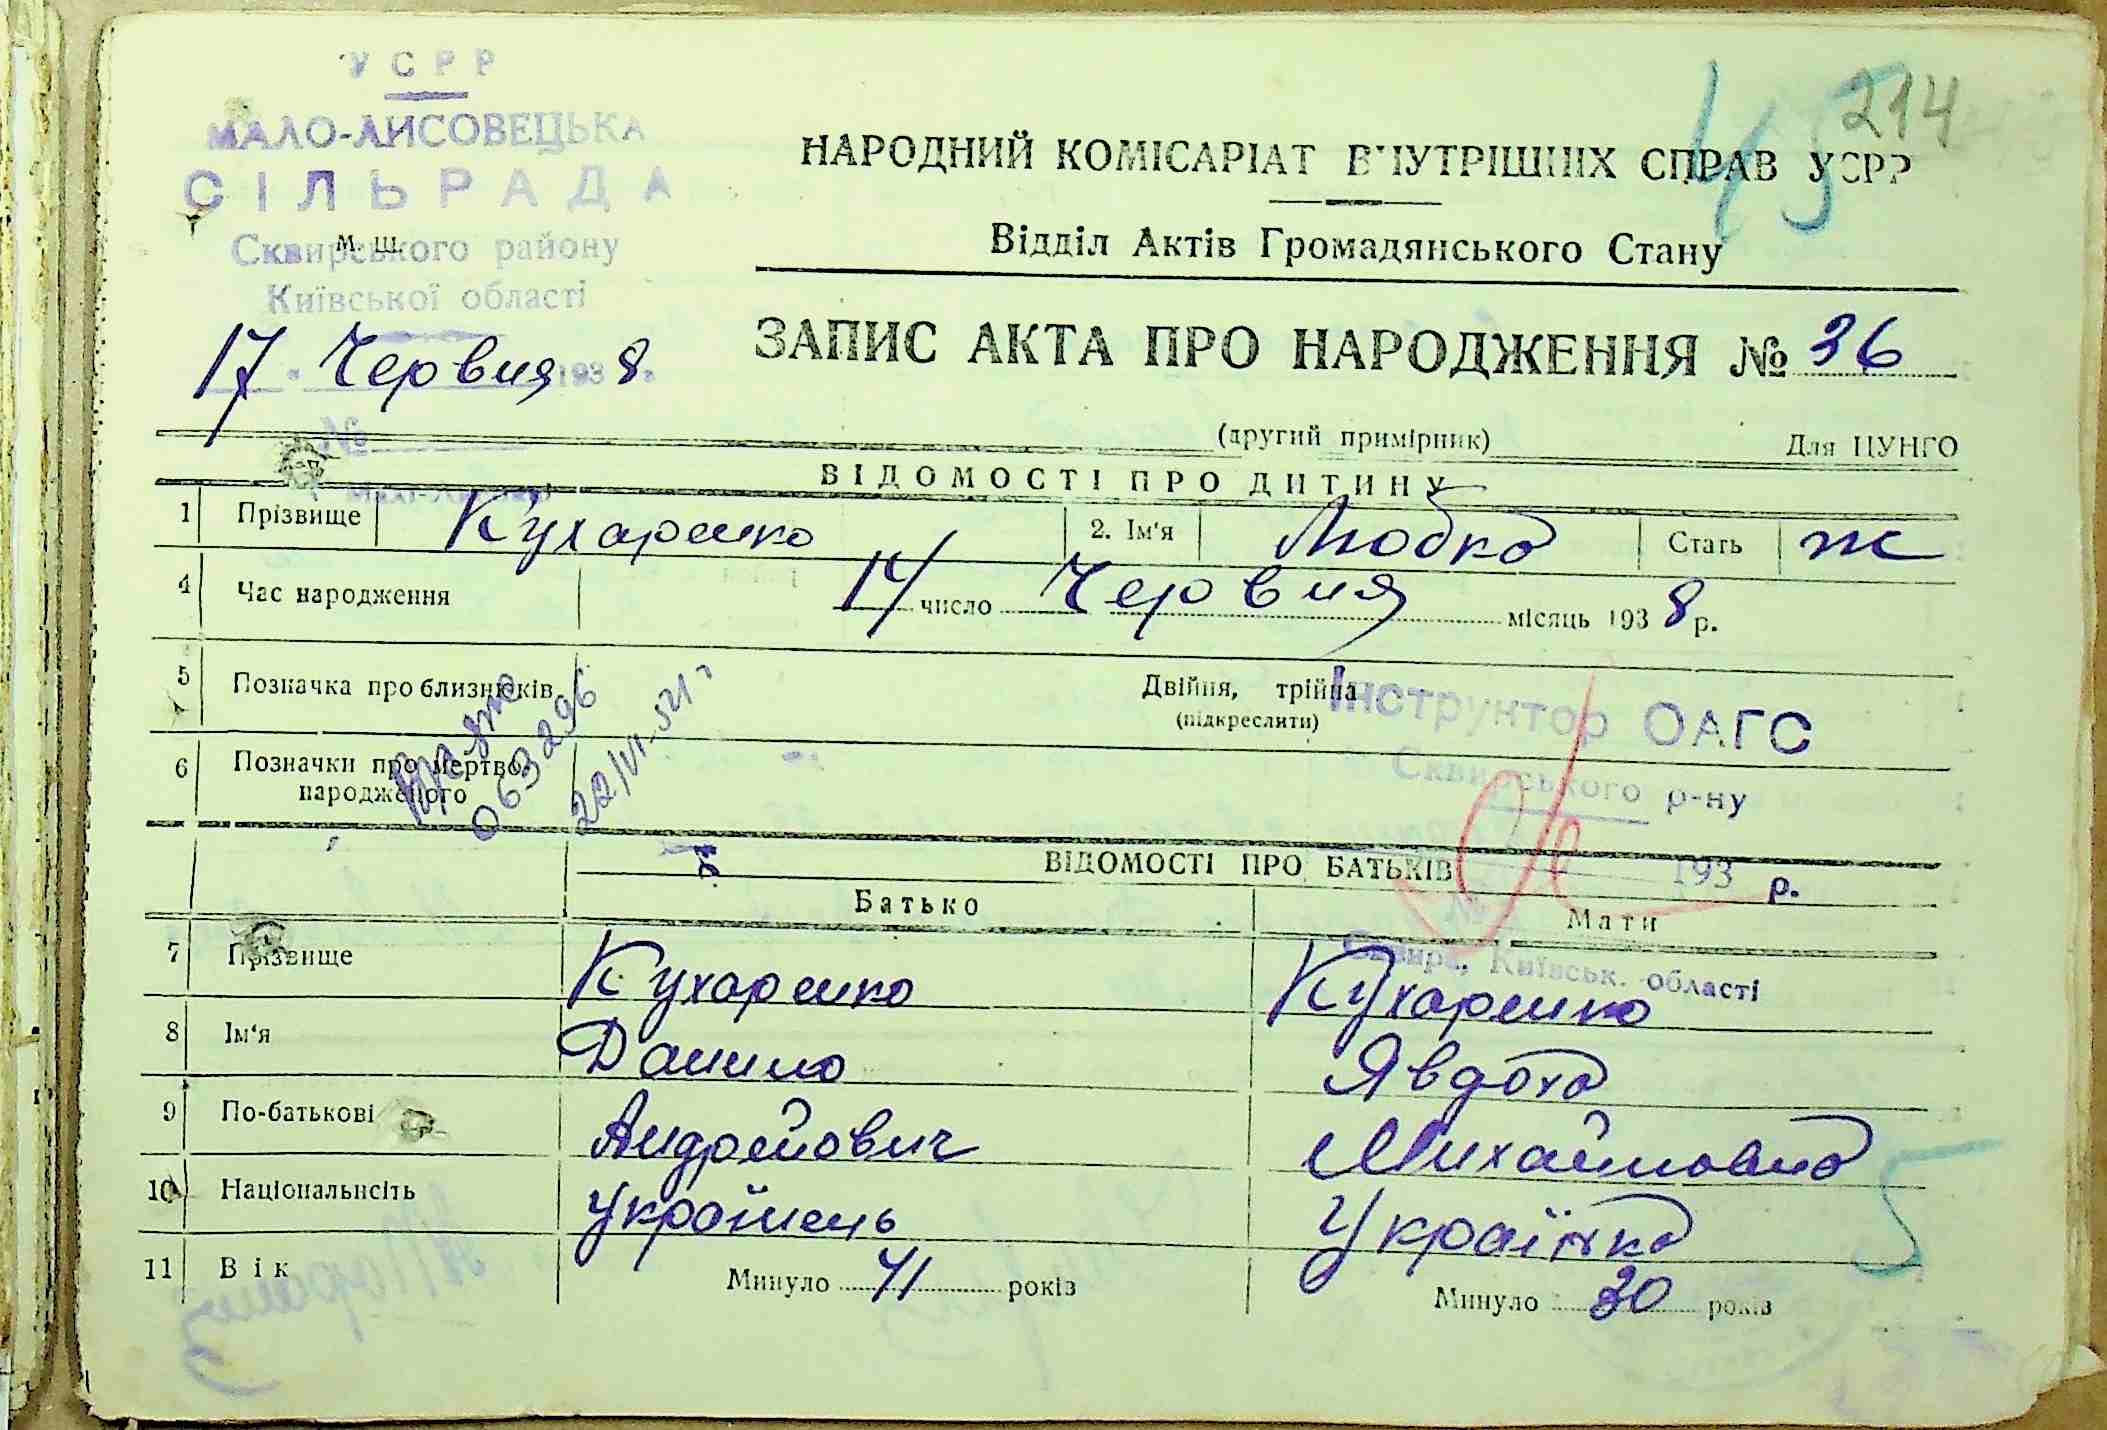 214
45
УСРР
МАЛО-ЛИСОВЕЦЬКА
СІЛЬРАДА
м. ш.
Сквирського району
Київської області
17 Червня 1938 р.
№
НАРОДНИЙ КОМІСАРІАТ ВНУТРІШНІХ СПРАВ УСРР
Відділ Актів Громадянського Стану
ЗАПИС АКТА ПРО НАРОДЖЕННЯ № 36
(другий примірник) Для ЦУНГО
ВІДОМОСТІ ПРО ДИТИНУ
1 Прізвище Кухаренко 2. Ім'я Любка Стать ж
4 Час народження 14 число Червня місяць 1938 р.
5 Позначка про близнюків Двійня, трійня
(підкреслити)
6 Позначки про мертво-
народженого
063296
22/VI-54 г
Інструктор ОАГС
Сквирського р-ну
193 р.
№
Сквира, Київськ. області
ВІДОМОСТІ ПРО БАТЬКІВ
Батько Мати
7 Прізвище Кухаренко Кухаренко
8 Ім'я Данило Явдоха
9 По-батькові Андрійович Михайловна
10 Національність Українець Українка
11 Вік Минуло 41 років Минуло 30 років
5